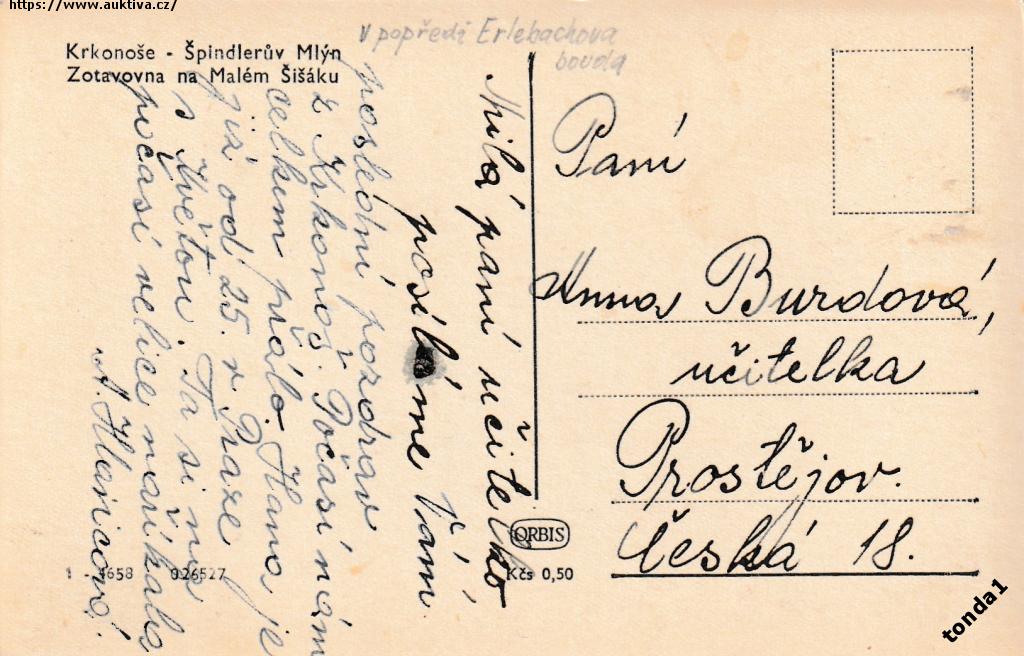 https://www.auktiva.cz/
Krkonoše - Špindlerův Mlýn
Zotavovna na Malém Šišáku
v popředí Erlebachova
bouda
Milá paní učitelko
posíláme Vám
poslední pozdrav
z Krkonoš. Počasí nám
celkem přálo. Hana je
již od 25. v Praze
s Květou. Ta si na
počasí velice naříkala
A. Hlavicová.
Paní
Anna Burdová,
učitelka
Prostějov.
Česká 18.
ORBIS
Kčs 0,50
1 - 4658 026527
tonda1